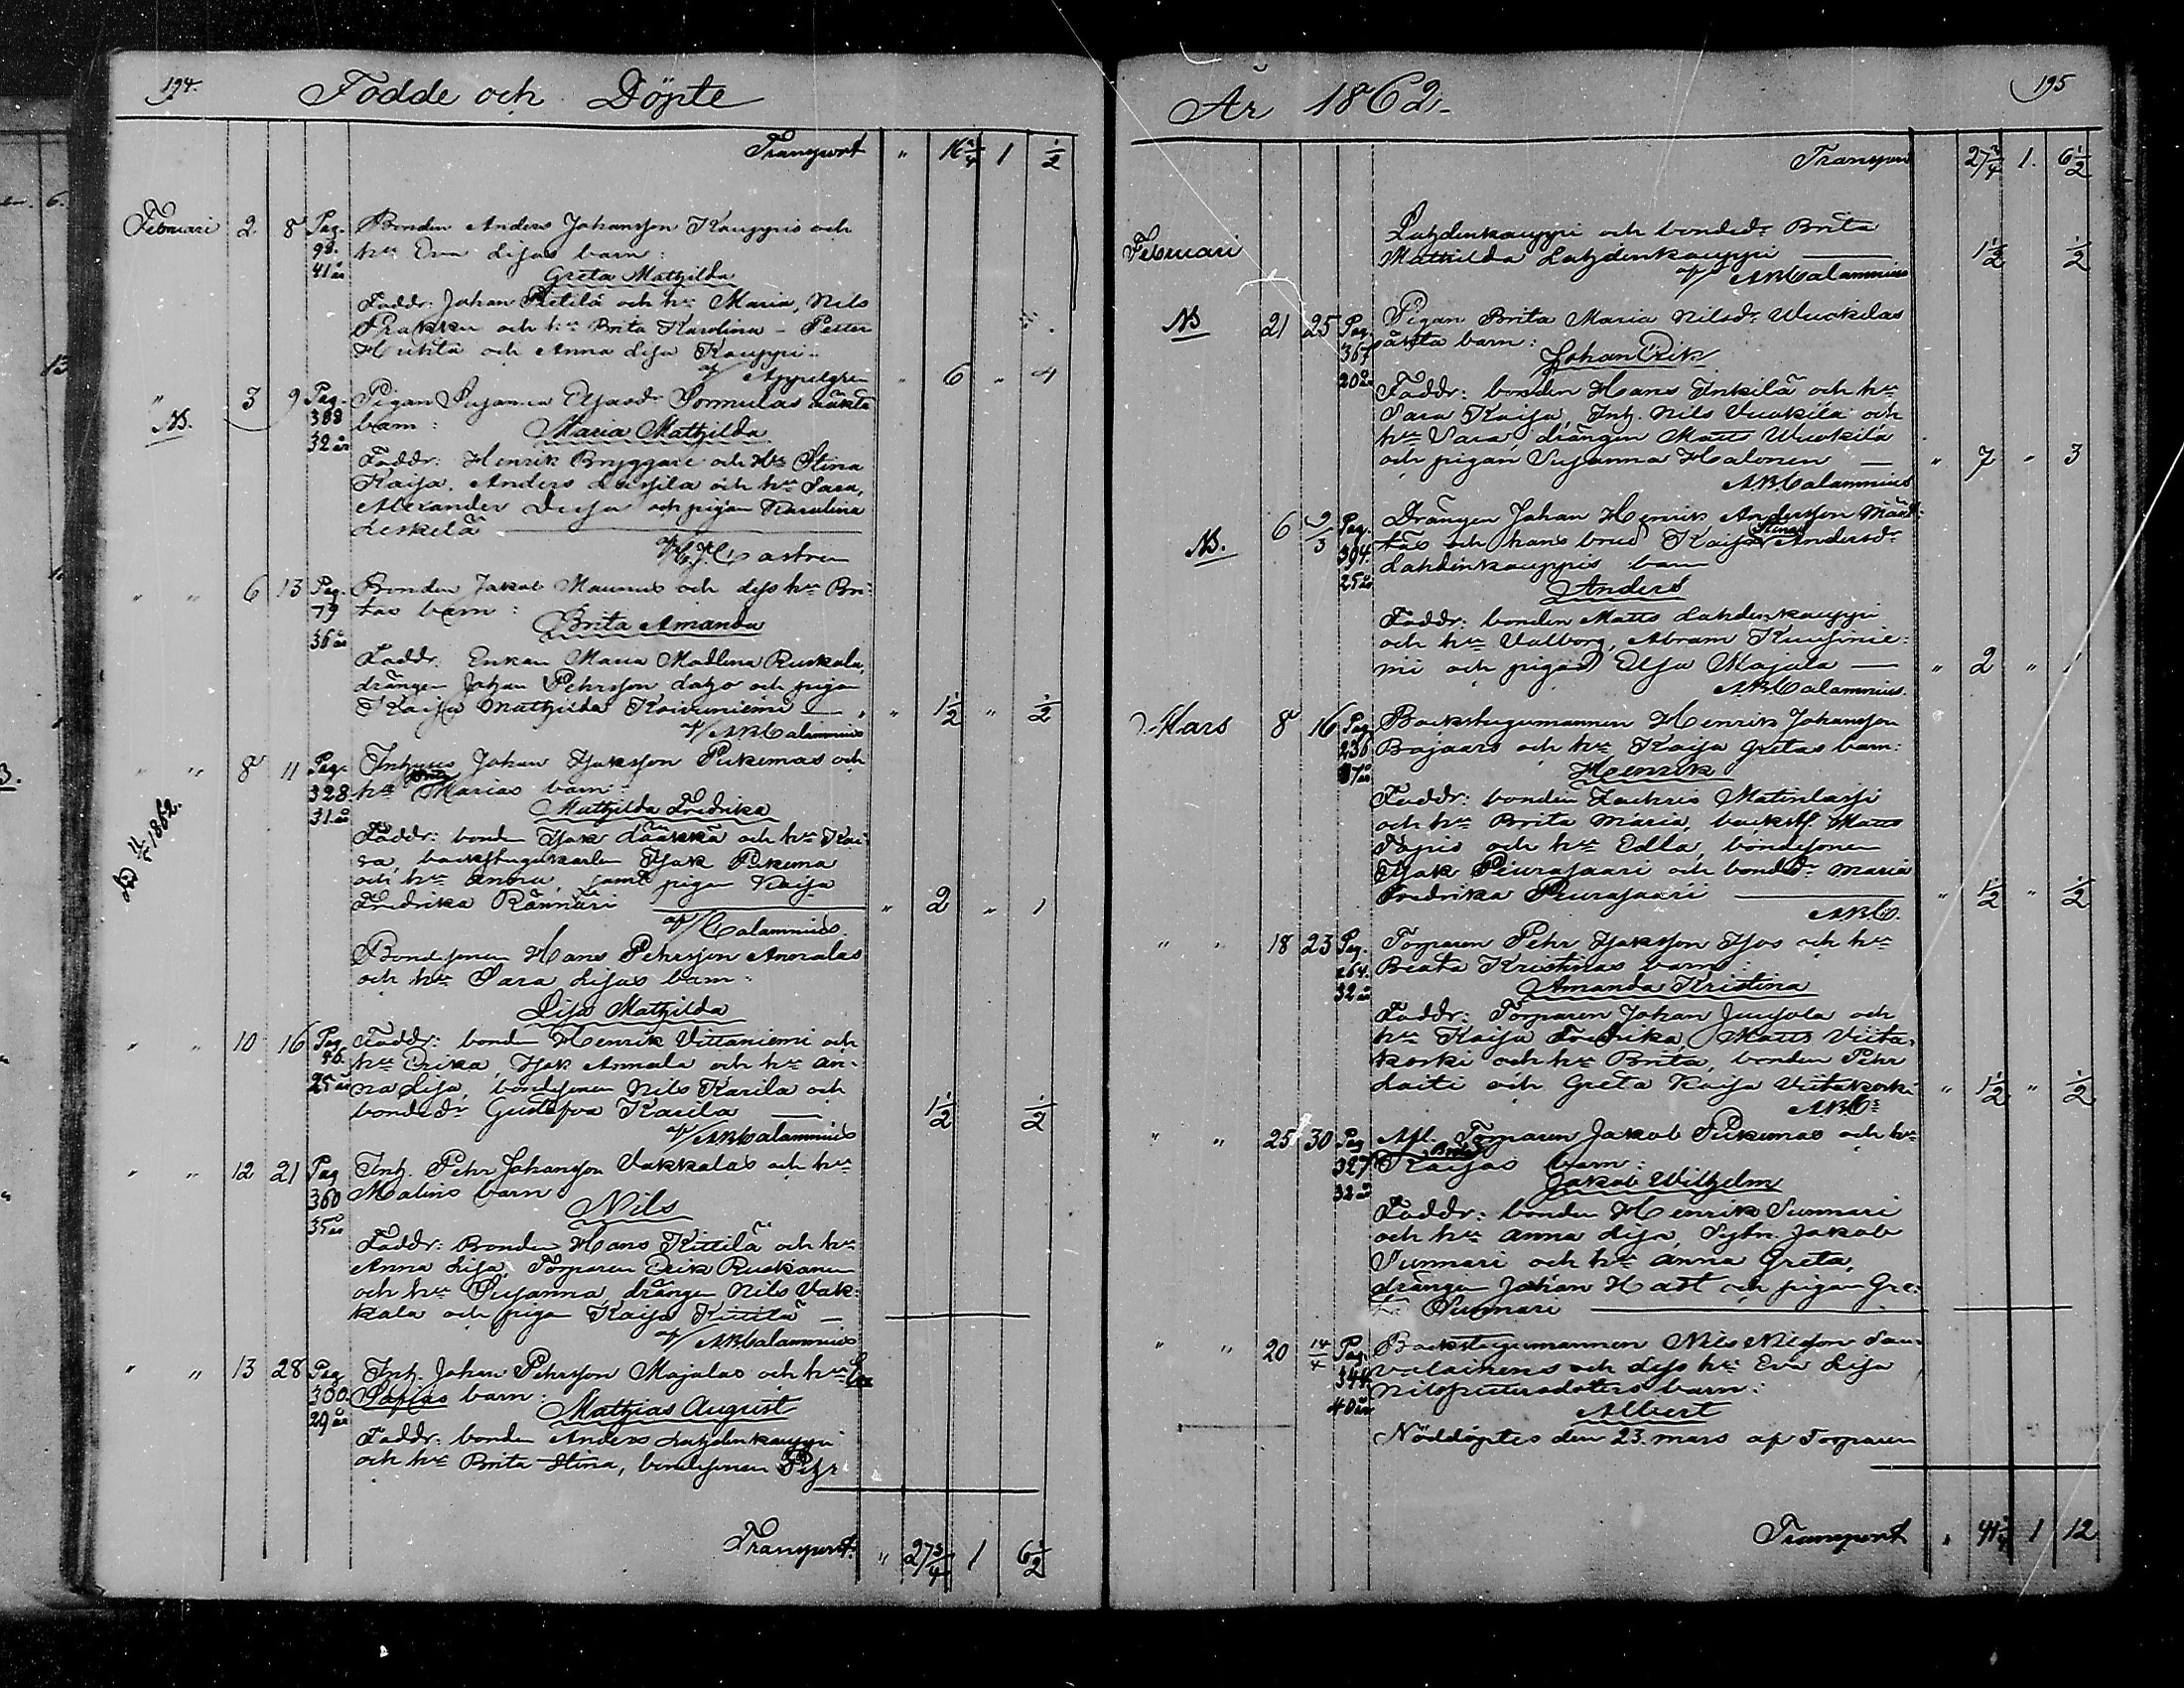 194.
Födde och Döpte
Transport " 16 3/4 1 1/2
Februari 2 8 Pag. Bonden Anders Johansson Kauppis och
98. hu Eva Lisas barn:
41 år Greta Mathilda
Faddr: Johan Pietilä och hu Maria, Nils
Prakku och hu Brita Karolina - Petter
Huhta och Anna Lisa Kauppi -
af/ Appelgren " 6 " 4
" 3 9 Pag. Pigan Susanna Eljasdr Sormulas oäkta
NB. 388 barn: Maria Mathilda
32 år Faddr: Henrik Bryggare och Hu Stina
Kaisa, Anders Lassila och hu Sara,
Alexander och pigan Karolina
Leskelä
af/ H.J. Castren
" " 6 13 Pag. Bonden Jakob Maunus och dess hu Bri-
79 tas barn:
36 år Brita Amanda
Faddr: Enkan Maria Madlena Ruskala,
drängen Johan Pehrsson Laho och pigan
Kaisa Mathilda Koivuniemi — " " 1 1/2 " 1/2
af/ ABCalamnius
" " 8 11 Pag. Inhyses Johan Isaksson Pukemas och
328 hu Brita Marias barn:
31 år Mathilda Fredrika
11/5 1862.
Faddr: bonden Isak Lääkkä och hu Kai-
sa, backstugukarlen Isak Pukema
och hu Anna, samt pigan Kaisa
Fredrika Rännäri " 2 " 1
af/ Calamnius.
Bondesonen Hans Pehrsson Annalas
och hu Sara Lisas barn:
Lisa Mathilda
" " 10 16 Pag Faddr: bonden Henrik Vittaniemi och
46. hu Erika, Isak Annala och hu An-
25 år na Lisa, bondesonen Nils Karila och
bondedr Gustafva Karila — 1 1/2 1/2
af/ ABCalamnius
" " 12 21 Pag Inh. Pehr Johansson Vakkalas och hu
360 Malins barn
35 år Nils
Faddr: Bonden Hans Kittilä och hu
Anna Lisa, Torparen Erik Ruokanen
och hu Susanna, drängen Nils Vak-
kala och pigan Kaisa Kittilä —
af/ ABCalamnius
" " 13 28 Pag Inh. Johan Pehrsson Majalas och hu Eva
300 Sofias barn:
29 år Mathias August
Faddr: bonden Anders Lahdenkauppi
och hu Brita Stina, bondesonen Pehr
Transport. " 27 3/4 1 6 1/2
År 1862.
195
Transport 27 3/4 1. 6 1/2
Februari Lahdenkauppi och bondedr Brita
Mathilda Lahdenkauppi — 1 1/2 1/2
af/ ABCalamnius
NB 21 25 Pag Pigan Brita Maria Nilsdr Wuokilas
367 oäkta barn:
20 år Johan Erik
Faddr: bonden Hans Inkilä och hu
Sara Kaisa, Inh. Nils Vuokila och
hu Sara, drängen Matts Wuokila
och pigan Susanna Halonen — " 7 " 3
ABCalamnius
NB. 6 9/3 Pag. Drängen Johan Henrik Andersson Määt-
394. täs och hans brud Kaisa Stina Andersdr
25 år Lahdenkauppis barn
Anders
Faddr: bonden Matts Lahdenkauppi
och hu Valborg, Abram Kuusinie-
mi och pigan Elsa Majala — " 2 " 1
ABCalamnius.
Mars 8 16 Pag Backstugumannen Henrik Johansson
236 Bajaars och hu Kaisa Gretas barn:
37 år Henrik
Faddr: bonden Zachris Matinlassi
och hu Brita Maria, backst. Matts
och hu Edla, bondesonen
Isak Peurasaari och bondedr Maria
Fredrika Peurasaari " 1 1/2 " 1/2
ABCs.
" " 18 23 Pag. Torparen Pehr Isaksson Isos och hu
264. Beata Kristinas barn:
32 år Amanda Kristina
Faddr: Torparen Johan Junsola och
hu Kaisa Fredrika, Matts Viita-
korki och hu Brita, bonden Pehr
Laiti och Greta Kaisa Viitakorki " 1 1/2 " 1/2
ABCs
" " 25 30 Pag Afl. Torparen Jakob Pukemas och hu
327 Brita Kaisas barn:
32 år Jakob Wilhelm
Faddr: bonden Henrik Sunnari
och hu Anna Lisa, Sytn. Jakob
Sunnari och hu Anna Greta,
drängen Johan Hast och pigan Gre-
ta Sunnari
" " 20 14/4 Pag. Backstugumannen Nils Nilsson Sau-
344 valainens och dess hu Eva Lisa
40 år Nilspettersdotters barn:
Albert
Nöddöptes den 23. mars af Torparen
Transport " 41 1/4 1 12